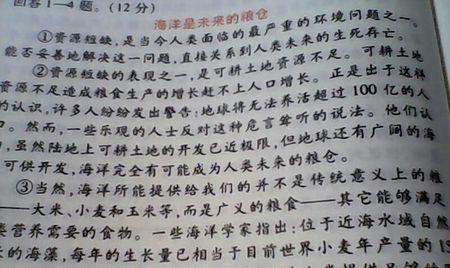 回答1—4题。(12分)
海洋是未来的粮仓
①资源短缺,是当今人类面临的最严重的环境问题之一。
能否妥善地解决这一问题,直接关系到人类未来的生死存亡。
②资源短缺的表现之一,是可耕土地资源不足。可耕土地
资源不足造成粮食生产的增长赶不上人口增长。正是出于这样
的认识,许多人纷纷发出警告:地球将无法养活超过100亿的人
口。然而,一些乐观的人士反对这种危言耸听的说法。他们认
,虽然陆地上可耕土地的开发已近极限,但地球还有广阔的海
可供开发,海洋完全有可能成为人类未来的粮仓。
③当然,海洋所能提供给我们的并不是传统意义上的粮
——大米、小麦和玉米等,而是广义的粮食——其它能够满足
类营养需要的食物。一些海洋学家指出:位于近海水域自然
长的海藻,每年的生长量已相当于目前世界小麦年产量的15